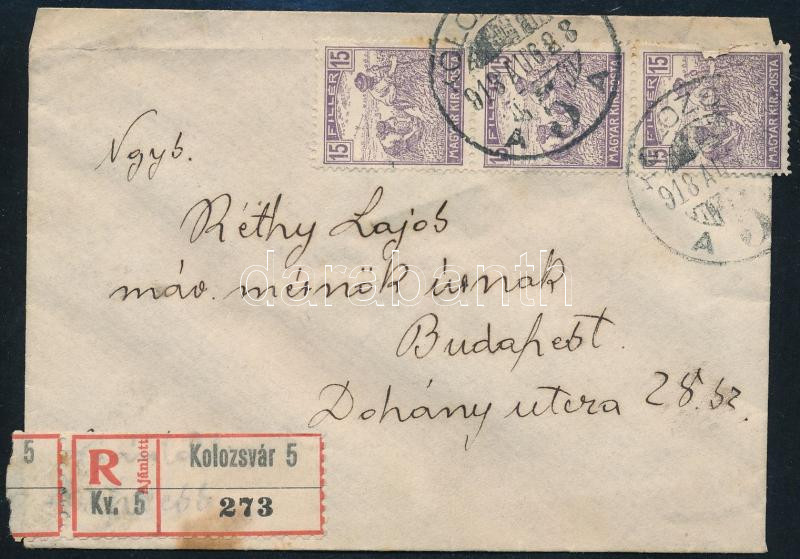 15 FILLÉR MAGYAR KIR. POSTA 15
15 FILLÉR MAGYAR KIR. POSTA 15
15 FILLÉR MAGYAR KIR. POSTA 15
918 AUG 28
A 5 A
918 AU
A 5
Ngys.
Réthy Lajos
máv. mérnök úrnak
Budapest.
Dohány utcza 28. sz.
darabanth
5
R Ajánlott Kolozsvár 5
Kv. 5 273